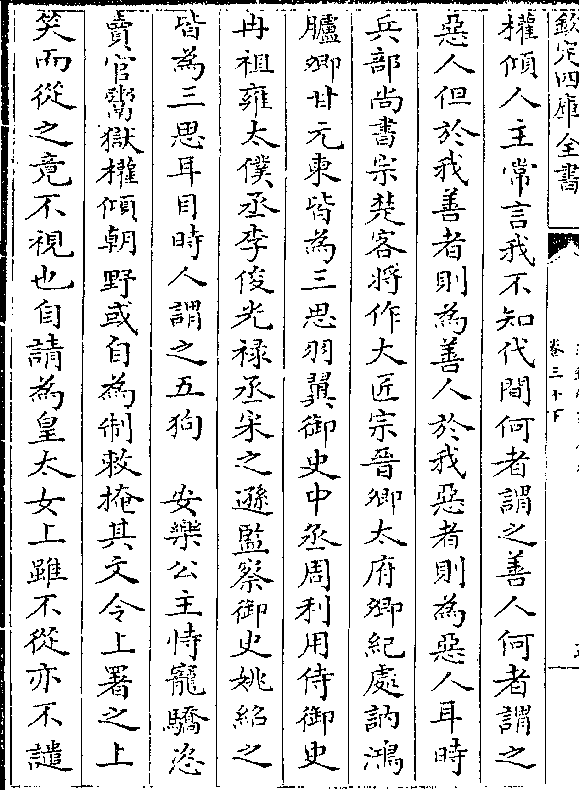 欽定四庫全書
卷三十下
權傾人主常言我不知代間何者謂之善人何者謂之
惡人但於我善者則為善人於我惡者則為惡人耳時
兵部尚書宗楚客將作大匠宗晉卿太府卿紀處訥鴻
臚卿甘元柬皆為三思羽翼御史中丞周利用侍御史
冉祖雍太僕丞李俊光禄丞宋之遜監察御史姚紹之
皆為三思耳目時人謂之五狗　安樂公主恃寵驕恣
賣官鬻獄權傾朝野或自為制敕掩其文令上署之上
笑而從之竟不視也自請為皇太女上雖不從亦不譴